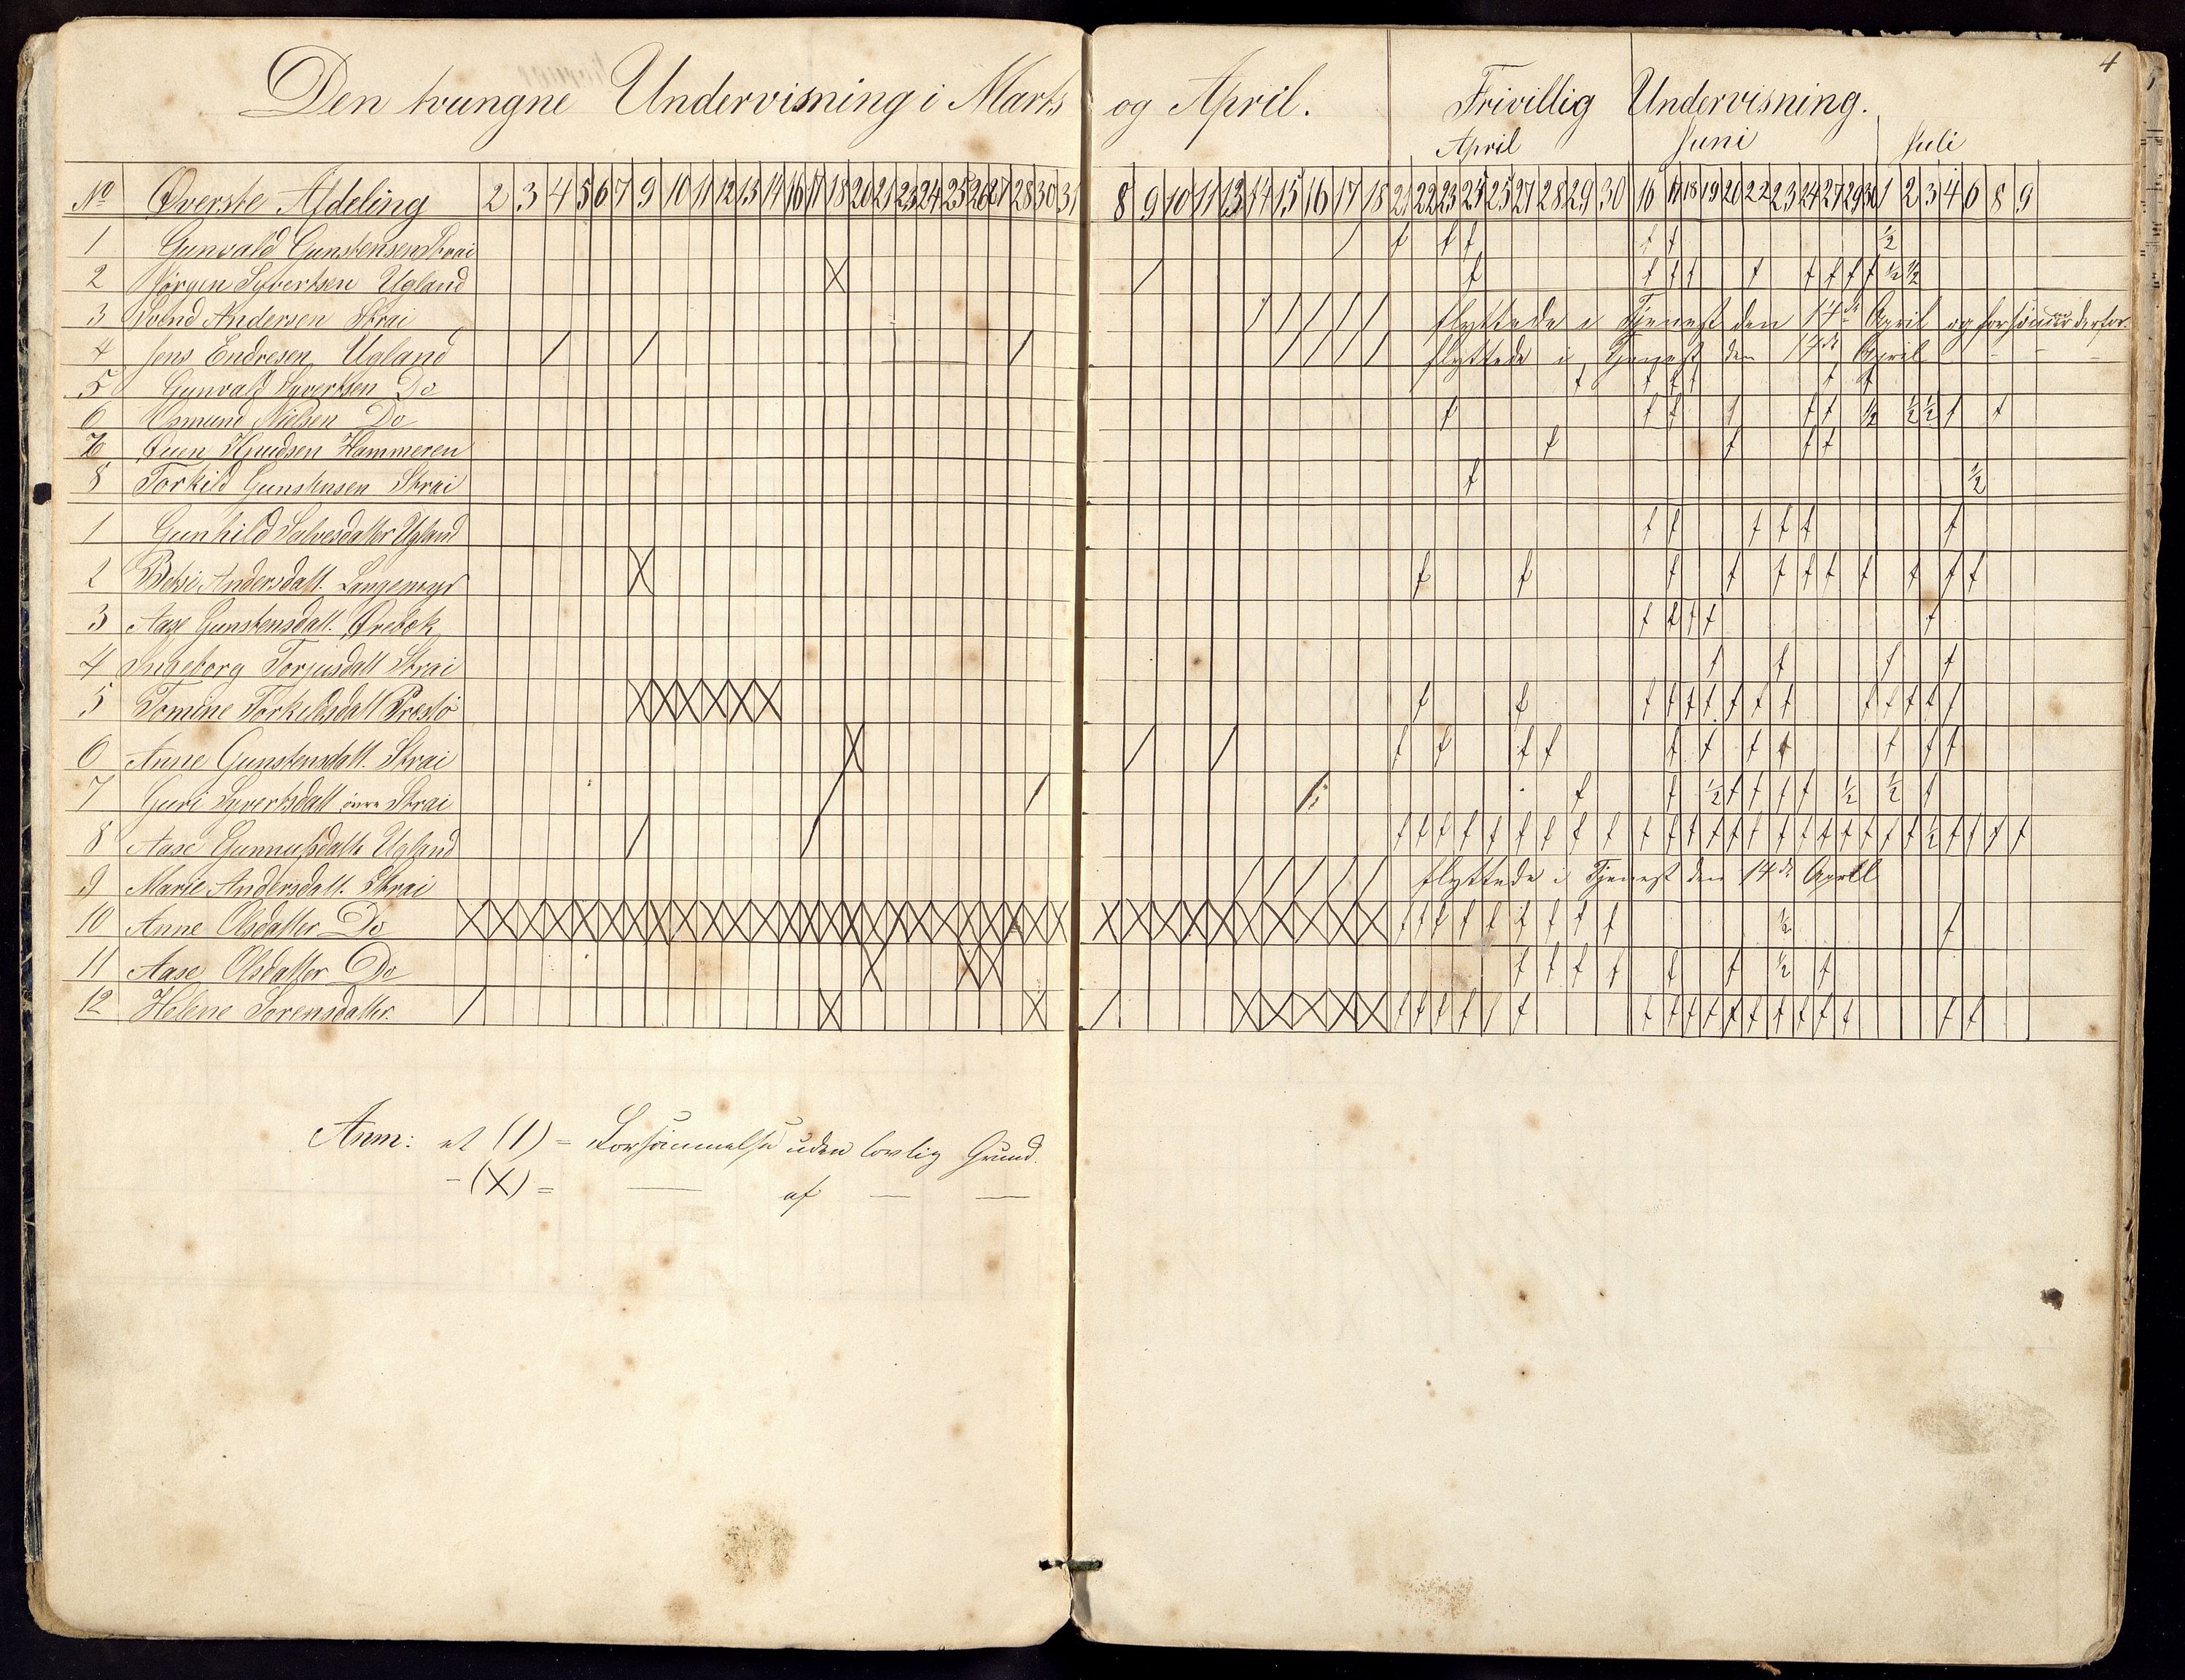 4
Den tvungne Undervisning i Marts og April. Frivillig Undervisning.
April Juni Juli
No Øverste Afdeling 2 3 4 5 6 7 9 10 11 12 13 14 16 17 18 20 21 23 24 25 26 27 28 30 31 8 9 10 11 13 14 15 16 17 18 21 22 23 24 25 27 28 29 30 16 17 18 19 20 22 23 24 27 29 30 1 2 3 4 6 8 9
1 Gunvald Gunstensen Strai / f f f f f ½
2 Jørgen Syvertsen Ugland X / f f f f f f f f f ½ ½
3 Svend Andersen Strai / / / / / flyttede i Tjenest den 14de April og forsømmer derfor
4 Jens Endresen Ugland / / / / / / / flyttede i Tjenest den 14de April – – –
5 Gunvald Syvertsen Do f f f f f f
6 Osmund Nielsen Do f f f f f f ½ ½ ½ f f
7 Knudsen Hammeren f f f f
8 Torkild Gunstensen Strai f ½
1 Gunhild Salvesdatter Ugland f f f f f f
2 Betsi Andersdatt. Langemyr X f f f f f f f f f f f
3 Aase Gunstensdatt. Ørebæk f f f f f
4 Ingeborg Torjusdatt Strai f f f f
5 Tomine Torkildsdatt Presto X X X X X X f f f f f f f f f f f f f f
6 Anne Gunstensdatt. Strai X / / f f f f f f f f f f f
7 Guri Syvertsdatt Strai / / / f f ½ f f f f ½ ½ f
8 Aase Gunnufsdattr Ugland / / f f f f f f f f f f f f f f f f f f f f f f f ½ f f f f
9 Marie Andersdatt. Strai / / / / / flyttede i Tjenest den 14de April
10 Anne Olsdatter Do X X X X X X X X X X X X X X X X X X X X X X X X X X X X X X X X X X X f f f f f f f f f ½ f
11 Aase Olsdatter Do X X X f f f f f f ½ f
12 Helene Sørensdatter. / X X / X X X X X f f f f f f f f f f f f f f f f f f
Anm: et (/) = Forsømmelse uden lovlig Grund.
– (X) = — af — —